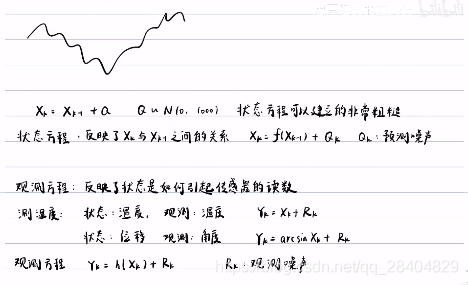 bilibili
Xₖ = Xₖ₋₁ + Q Q ~ N(0, 1000) 状态方程可以建立的非常粗糙
状态方程:反映了Xₖ与Xₖ₋₁之间的关系 Xₖ = f(Xₖ₋₁) + Qₖ Qₖ:预测噪声
观测方程:反映了状态是如何引起传感器的读数
测温度: 状态:温度, 观测:温度 Yₖ = Xₖ + Rₖ
状态:位移 观测:角度 Yₖ = arcsin Xₖ + Rₖ
观测方程 Yₖ = h(Xₖ) + Rₖ Rₖ:观测噪声
sdn.net/qq_28404829